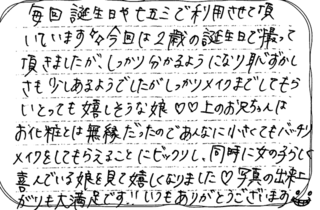 毎回誕生日や七五三で利用させて頂
いています今回は2歳の誕生日で撮って
頂きましたが、しっかり分かるようになり恥ずかし
さも少しあるようでしたがしっかりメイクまでしてもら
いとっても嬉しそうな娘♡♡上のお兄ちゃんは
お化粧とは無縁だったのであんなに小さくてもバッチリ
メイクをしてもらえることにビックリし、同時に女の子らしく
喜んでいる娘を見て嬉しくなりました♡写真の出来上
がりも大満足です!!いつもありがとうございます